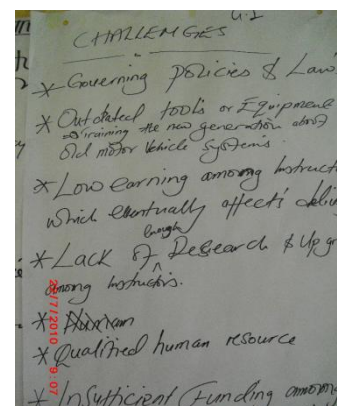 4.1
CHALLENGES
* Governing policies & Law
* Outdated tools or Equipment
training the new generation about
old motor vehicle systems.
* Low earning among Instruct
which eventually affects deliv
enough
* Lack of ^ Research & Upgr
among Instructors.
* Human
* Qualified human resource
* Insufficient Funding among
28/7/2010 19:07